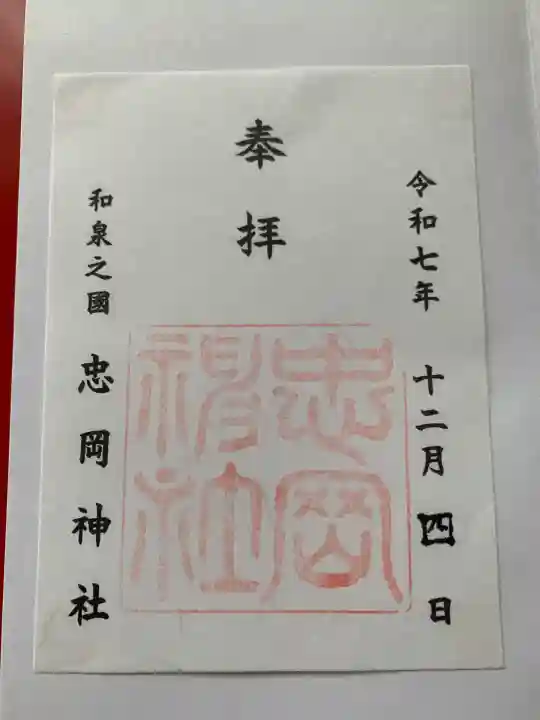 令和七年 十二月 四 日
奉拝
忠岡
神社
和泉之國 忠岡神社